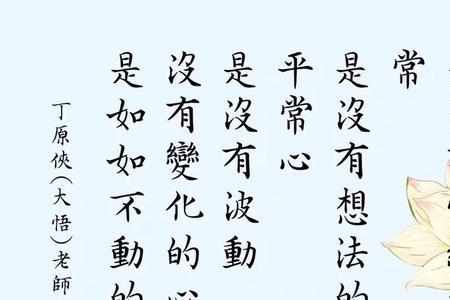 常
是沒有想法的
平常心
是沒有波動
沒有變化的心
是如如不動的
丁原俠(大悟)老師